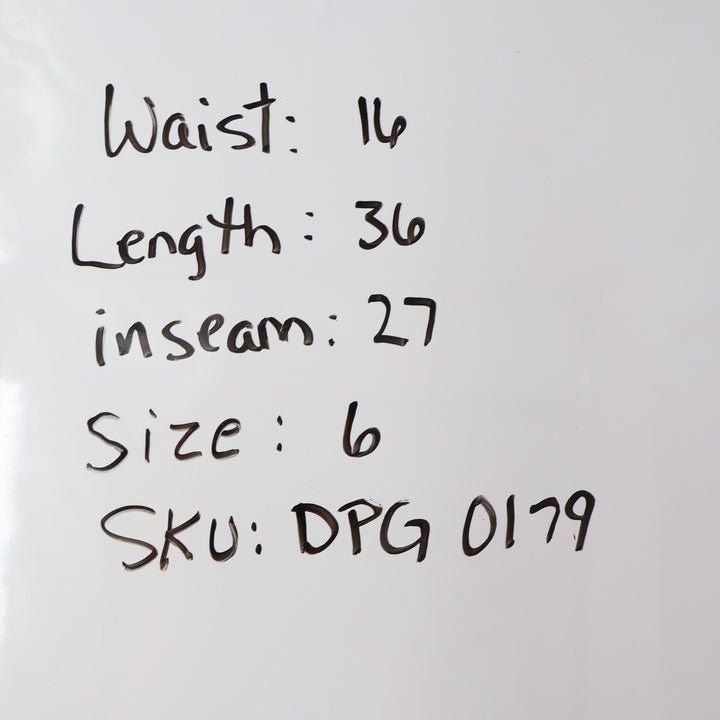 Waist: 16
Length: 36
inseam: 27
Size: 6
SKU: DPG 0179